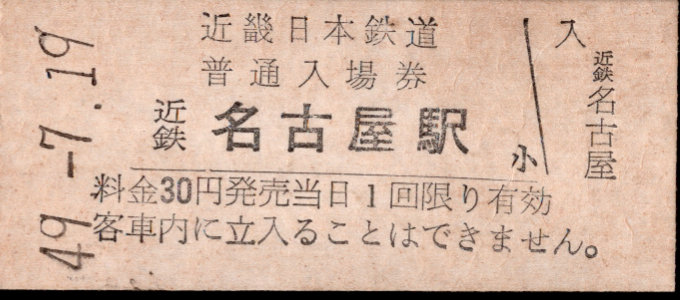 49.-7.19
近畿日本鉄道
普通入場券
近鉄 名古屋駅
小
料金30円発売当日1回限り有効
客車内に立入ることはできません。
入
近鉄名古屋